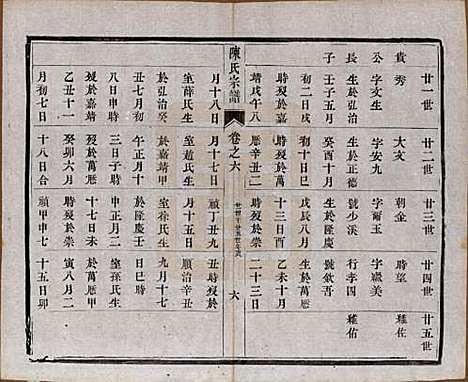 廿一世 廿二世 廿三世 廿四世 廿五世
貴秀 大文 朝金 時望 雞佐
公 字文生 字安九 字爾玉
長 生於弘治 生於正德 號少溪 行李四 雞佑
子 壬子五月 癸酉十月 生於隆慶 號欽吾
初二日戌 初十日巳 戊辰八月 生於萬曆
時歿於嘉 時歿於萬 十三日酉 乙未十月
靖戊午八 曆辛丑二 時歿於崇 二十三日
陳氏宗譜 卷之六 六
月十八日 月十七日 禎丁丑九 丑時歿於
室薛氏生 室趙氏生 月十五日 順治辛
於弘治癸 於嘉靖 室徐氏生 九月十七
丑七月初 午正月十 於隆慶壬 日巳時
八日申時 三日子時 申正月二 室孫氏生
歿於嘉靖 歿於萬曆 十七日未 於萬曆甲
乙丑十一 癸卯六月 時歿於崇 寅八月二
月初七日 十八日合 禎甲申七 十五日卯